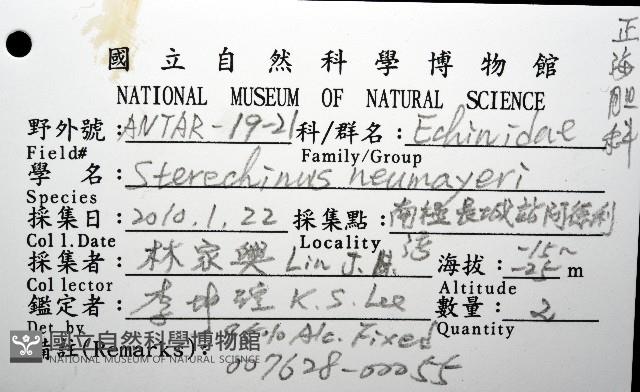 國立自然科學博物館
正海胆科
NATIONAL MUSEUM OF NATURAL SCIENCE
野外號: ANTAR-19-21 科/群名: Echinidae
Field# Family/Group
學名: Sterechinus neumayeri
Species
採集日: 2010.1.22 採集點: 南極長城站阿德利
Coll.Date Locality 湾
採集者: 林家興 Lin J. H. 海拔: -15~-25 m
Collector Altitude
鑑定者: 李坤瑄 K.S. Lee 數量: 2
Det by Quantity
備註(Remarks): 95% Alc. Fixed
007628-00055
國立自然科學博物館
NATIONAL MUSEUM OF NATURAL SCIENCE